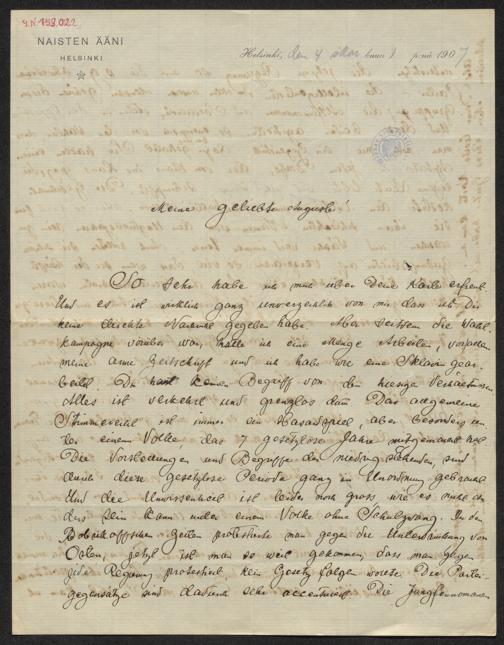 4.N 458.022
NAISTEN ÄÄNI
HELSINKI
Helsinki, den 4 kuun p:nä 1907
Meine geliebte Auguste!
So sehr habe ich mich über Deine Karte erfreut.
Und es ist wirklich ganz unverzeihlich von mir dass ich Dir
keine Nachricht gegeben habe. Aber seitdem die Wahl
kampagne vorüber war, hatte ich eine Menge Arbeiten,
meine arme Zeitschrift und ich habe wie eine Sklavin gear-
beitet. Du hast keinen Begriff von den hiesigen Verhältnissen
Alles ist verkehrt und grenzlos dumm. Das allgemeine
Stimmrecht ist immer ein Hasardspiel, aber besonders un
ter einem Volke das 7 gesetzlose Jahre mitgemacht hat
Die Vorstellungen und Begriffe der niedrigstehenden, sind
durch diese gesetzlose Periode ganz in Unordnung gebracht
Und die Unwissenheit ist leider noch gross, wie es nicht an
ders sein kann unter einem Volke ohne Schulzwang. In den
Bobrikoffschen Zeiten protestierte man gegen die Unterdrückung von
Osten, jetzt ist man so weit gekommen, dass man gegen
jede Regierung protestiert kein Gesetz folgen wollte. Die Partei-
gegensätze sind dadurch sehr accentuiert. Die Jungfennomanen